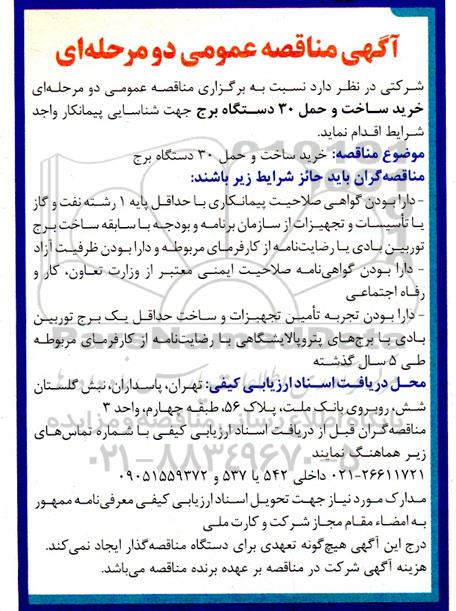 آگهی مناقصه عمومی دو مرحله‌ای
شرکتی در نظر دارد نسبت به برگزاری مناقصه عمومی دو مرحله‌ای
خرید ساخت و حمل ۳۰ دستگاه برج جهت شناسایی پیمانکار واجد
شرایط اقدام نماید.
موضوع مناقصه: خرید ساخت و حمل ۳۰ دستگاه برج
مناقصه‌گران باید حائز شرایط زیر باشند:
- دارا بودن گواهی صلاحیت پیمانکاری با حداقل پایه ۱ رشته نفت و گاز
یا تأسیسات و تجهیزات از سازمان برنامه و بودجه با سابقه ساخت برج
توربین بادی یا رضایت‌نامه از کارفرمای مربوطه و دارا بودن ظرفیت آزاد
- دارا بودن گواهی‌نامه صلاحیت ایمنی معتبر از وزارت تعاون، کار و
رفاه اجتماعی
- دارا بودن تجربه تأمین تجهیزات و ساخت حداقل یک برج توربین
بادی یا برج‌های پتروپالایشگاهی با رضایت‌نامه از کارفرمای مربوطه
طی ۵ سال گذشته
محل دریافت اسناد ارزیابی کیفی: تهران، پاسداران، نبش گلستان
شش، روبروی بانک ملت، پلاک ۵۶، طبقه چهارم، واحد ۳
مناقصه‌گران قبل از دریافت اسناد ارزیابی کیفی با شماره تماس‌های
زیر هماهنگ نمایند
۰۲۱-۲۶۶۱۱۷۲۱ داخلی ۵۴۲ یا ۵۳۷ و ۰۹۰۵۱۵۵۹۳۷۲
مدارک مورد نیاز جهت تحویل اسناد ارزیابی کیفی معرفی‌نامه ممهور
به امضاء مقام مجاز شرکت و کارت ملی
درج این آگهی هیچ‌گونه تعهدی برای دستگاه مناقصه‌گذار ایجاد نمی‌کند.
هزینه آگهی شرکت در مناقصه بر عهده برنده مناقصه می‌باشد.
ParsNamadData
۰۲۱-۸۸۳۴۹۶۷۰-۵